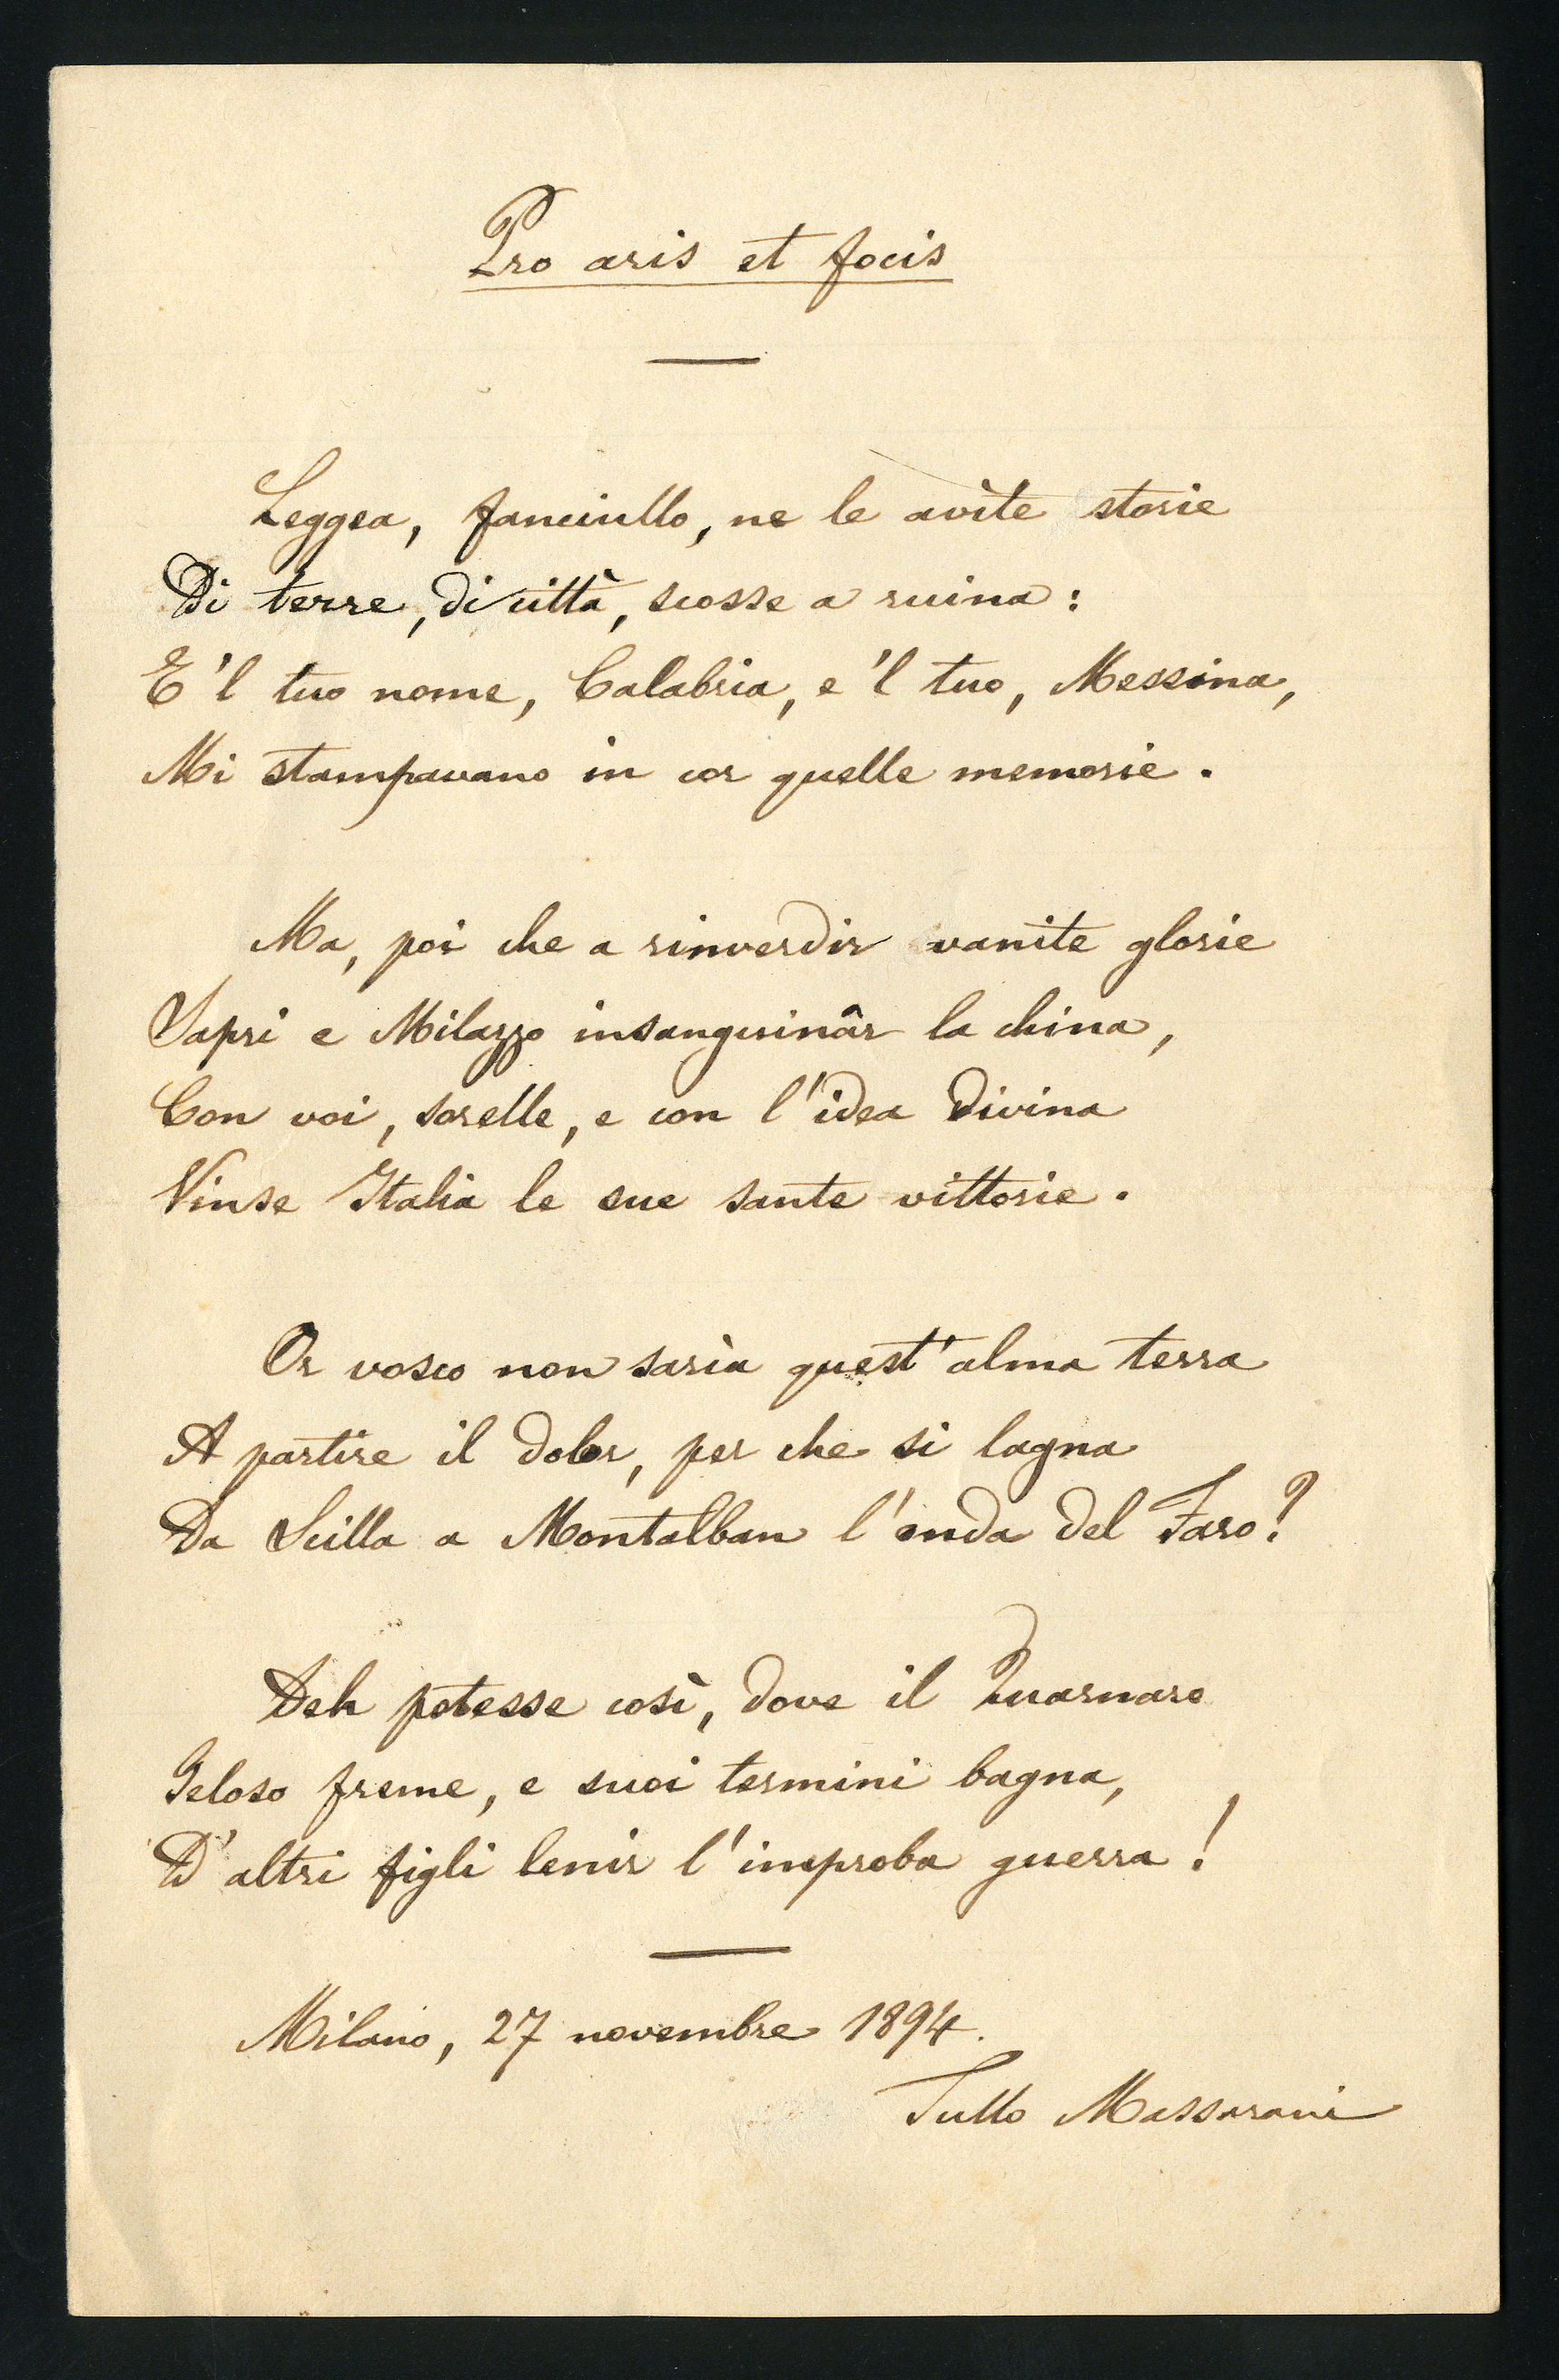 Pro aris et focis
Leggea, fanciullo, ne le avìte storie
Di terre, di città, scosse a ruina:
E 'l tuo nome, Calabria, e 'l tuo, Messina,
Mi stampavano in cor quelle memorie.
Ma, poi che a rinverdir vanite glorie
Sapri e Milazzo insanguinâr la china,
Con voi, sorelle, e con l'idea divina
Vinse Italia le sue sante vittorie.
Or vosco non sarìa quest'alma terra
A partire il dolor, per che si lagna
Da Scilla a Montalban l'onda del Faro?
Deh potesse così, dove il Quarnaro
Geloso freme, e suoi termini bagna,
D'altri figli lenir l'improba guerra!
Milano, 27 novembre 1894.
Tullo Massarani